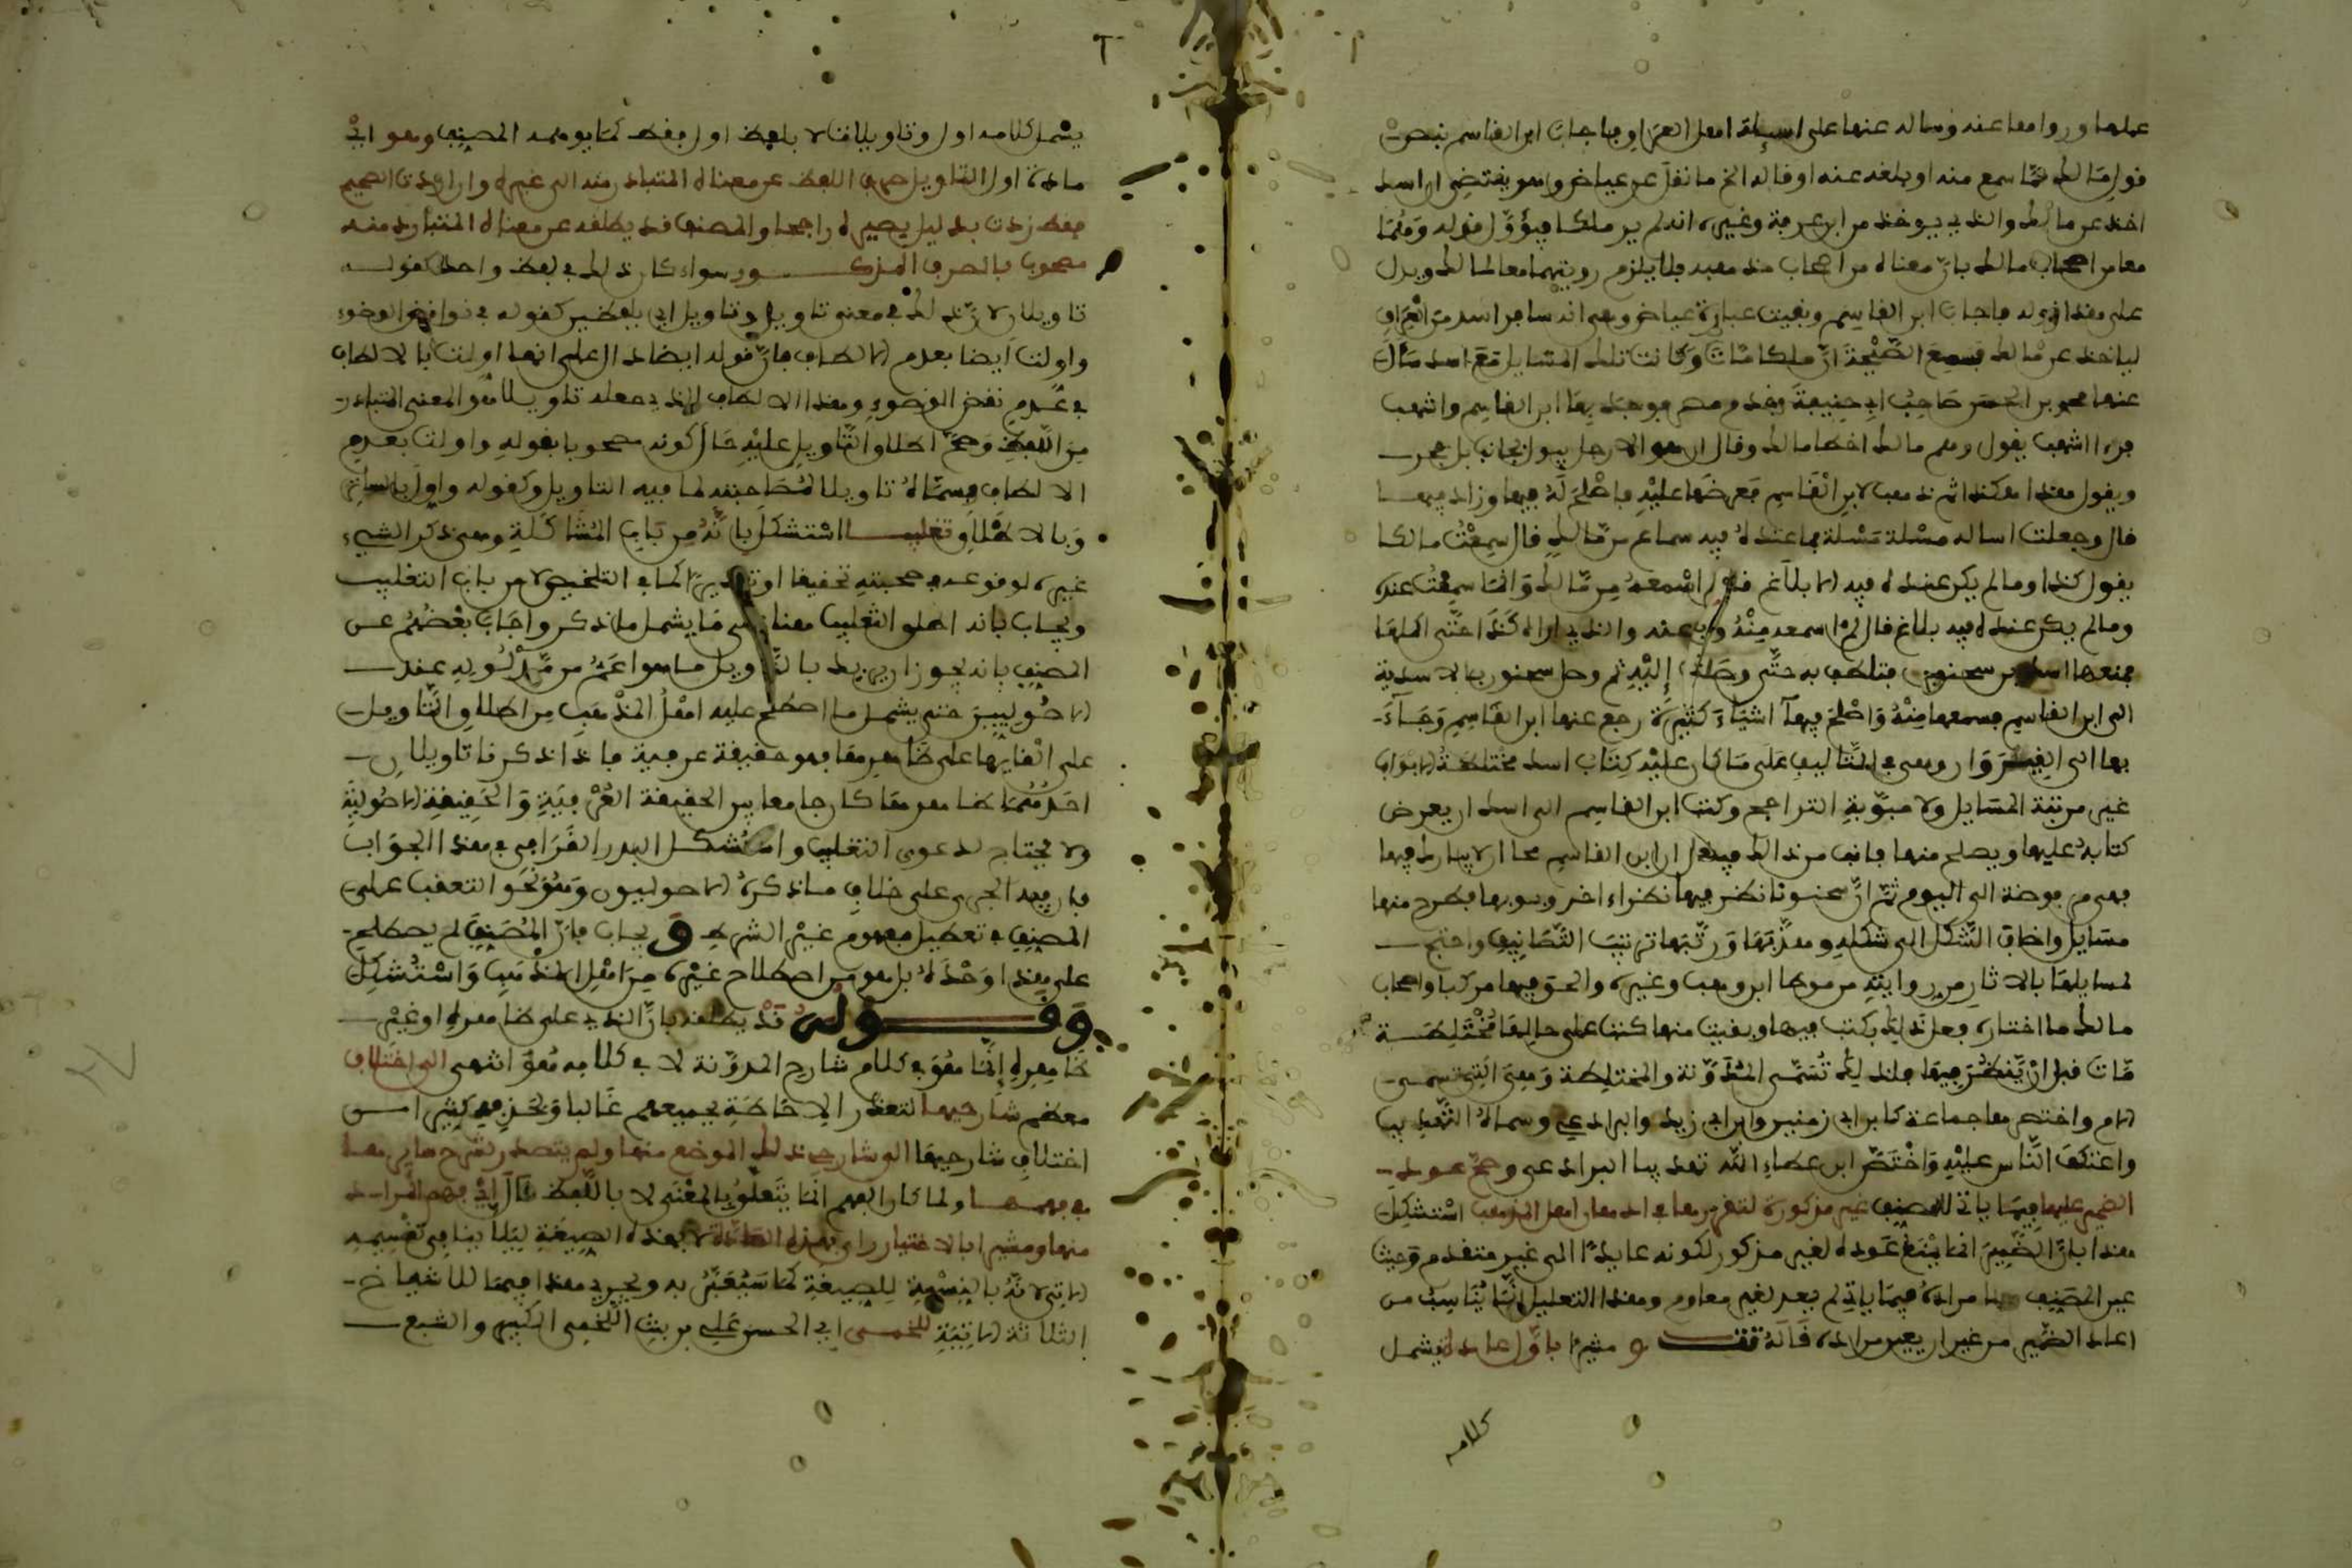 عملها وروا معا عنه وساله عنها على اسيلة اهل العراو فاجاب ابن الفاسم بنصوص
فول مالك مما سمع منه او بلغه عنه او فاله الخ ما نفل عن عياض وهو يفتضى ان اسد
اخذ عن مالك والذي يوخذ من ابن عرفة وغيره انه لم ير ملكا فيؤول فوله وهما
معا من اصحاب مالك بان معناه من اصحاب مذهبه فلا يلزم رويتهما معا لمالك ويدل
على هذا فوله فاجاب ابن الفاسم وبفيت عبارة عياض وهى انه سافر اسد من العراو
لياخذ عن مالك فسمع الضجة ان ملكا مات وكانت تلك المسايل مع اسد سال
عنها محمد بن الحسن صاحب ابى حنيفة وفدم مصر فوجد بها ابن الفاسم واشهب
فراى اشهب يفول وهم مالك اخطا مالك وفال ان هو الا رجل يبول بجانب بحر
ويفول هذا هكذا ثم ذهب لابن الفاسم فعرضها عليه فاصلح له فيها وزاد فيها
فال وجعلت اساله مسئلة مسئلة بما عنده فيه سماع من مالك فال سمعت مالكا
يفول كذا وما لم يكن عنده فيه الا بلاغ فال لم اسمعه من مالك وانما سمعت عنه
وما لم يكن عنده فيه بلاغ فال لم اسمعه منه ولا عنه والذي اراه كذا حتى اكملها
فمنعها اسد من سحنون فتلطف به حتى وصلت إليه ثم رحل سحنون بالاسدية
الى ابن الفاسم فسمعها منه واصلح فيها اشياء كثيرة رجع عنها ابن الفاسم وجاء
بها الى الفيروان وهى في التاليف على ما كان عليه كتاب اسد مختلطة الابواب
غير مرتبة المسايل ولا مبوبة التراجم وكتب ابن الفاسم الى اسد ان يعرض
كتابه عليها ويصلح منها فانف من ذالك فيفال ان ابن الفاسم دعا ان لا يبارك فيها
فهى مرفوضة الى اليوم ثم ان سحنونا نظر فيها نظرا اخر وبوبها وطرح منها
مسايل واضاف الشكل الى شكله وهذبها ورتبها ترتيب التصانيف واحتج
لمسايلها بالاثار من روايته من موطا ابن وهب وغيره والحق فيها من كتب اصحاب
مالك ما اختاره فعل ذالك بكتب فيها وبفيت منها كتب على حالها مختلطة
مات فبل ان ينظر فيها فلذلك تسمى المدونة والمختلطة وهى التى تسمى
الام واختصرها جماعة كابن ابى زمنين وابن ابى زيد والبرادعي وسماه التهذيب
واعتكف الناس عليه واختصر ابن عطاء الله تهذيب البرادعى وصح عود
الضمير عليها فيما ياتى للمصنف غير مذكورة لتفررها في اذهان اهل المذهب استشكل
هذا بان الضمير انما يمتنع عوده لغير مذكور لكونه عايدا الى غير متفدم وحيث
عين المصنف هنا مراده فيما ياتى لم يعد لغير معلوم وهذا التعليل انما يناسب من
اعاد الضمير من غير ان يعين مراده فاله تت و مشيرا باول عايد ليشمل
كلامه
يشمل كلامه اول وتاويلان لا بلفظ اول بفط كما يوهمه المصنف وهو اتى
مادة اول التاويل صرف اللفظ عن معناه المتبادر منه الى غيره وان اردت الصحيح
بفط زدت بدليل يصيره راجحا والمصنف فد يطلفه عن معناه المتبادر منه
مصحوبا بالصرف المذكور سواء كان ذلك في لفظ واحد كفوله
تاويلان لان ذلك في معنى تاويل وتاويل اى بلفظين كفوله في نوافض الوضوء
واولت ايضا بعدم الالطاف فان فوله ايضا دال على انها اولت بالالطاف
في عدم نفض الوضوء وهذا الالطاف الذي جعله تاويلا هو المعنى المتبادر
من اللفظ وصح اطلاو التاويل عليه حال كونه مصحوبا بفوله واولت بعدم
الالطاف فسماه تاويلا لمصاحبته لما فيه التاويل وكفوله واول بالسابق
وبالاطلاو تغليبا استشكل بانه من باب المشاكلة وهى ذكر الشيء
غيره لوفوعه في صحبته تحفيفا او تفديرا كما في التلخيص لا من باب التغليب
ويجاب بانه اطلو التغليب معناه على ما يشمل ما ذكر واجاب بعضهم عن
المصنف بانه يجوز ان يريد بالتاويل ما هو اعم من مدلوله عند
الاصوليين حتى يشمل ما اصطلح عليه اهل المذهب من اطلاو التاويل
على ابفايها على ظاهرها فهو حفيفة عرفية فاذا ذكر تاويلان
احدهما ظاهرها كان جامعا بين الحفيفة العرفية والحفيفة الاصولية
ولا يحتاج لدعوى التغليب واستشكل البدر الفرافى في هذا الجواب
فان فيه الجرى على خلاف ما ذكره الاصوليون وهو نحو التعفب على
المصنف في تعطيل مفهوم غير الشرط و يجاب فان المصنف لم يصطلح
على هذا وحده بل هو من اصطلاح غيره من اهل المذهب واستشكل
وفوله فد يطلفه بان الذي على ظاهره او غير
ظاهره إنما هو في كلام شارح المدونة لا في كلامه هو انتهى الى اختلاف
معظم شارحيها لتعذر الاحاطة بجميعهم غالبا ونحن كثيرا من
اختلاف شارحيها الو شارحى ذلك الموضع منها ولم يتصدر لشرح سايرها
في فهمها ولما كان الفهم انما يتعلو بالمعنى لا باللفظ فال اى فهم المراد
منها ومشيرا بالاختيار راى بهذه المادة لا بهذه الصيغة ليلا ينافى تفسيمه
الاتى لانه بالنسبة للصيغة كما سيعبر به ويجرى هذا فيما للاشياخ
الثلاثة الاتية للخمى ابى الحسن علي بن ربيث اللخمى الكبير والشيع